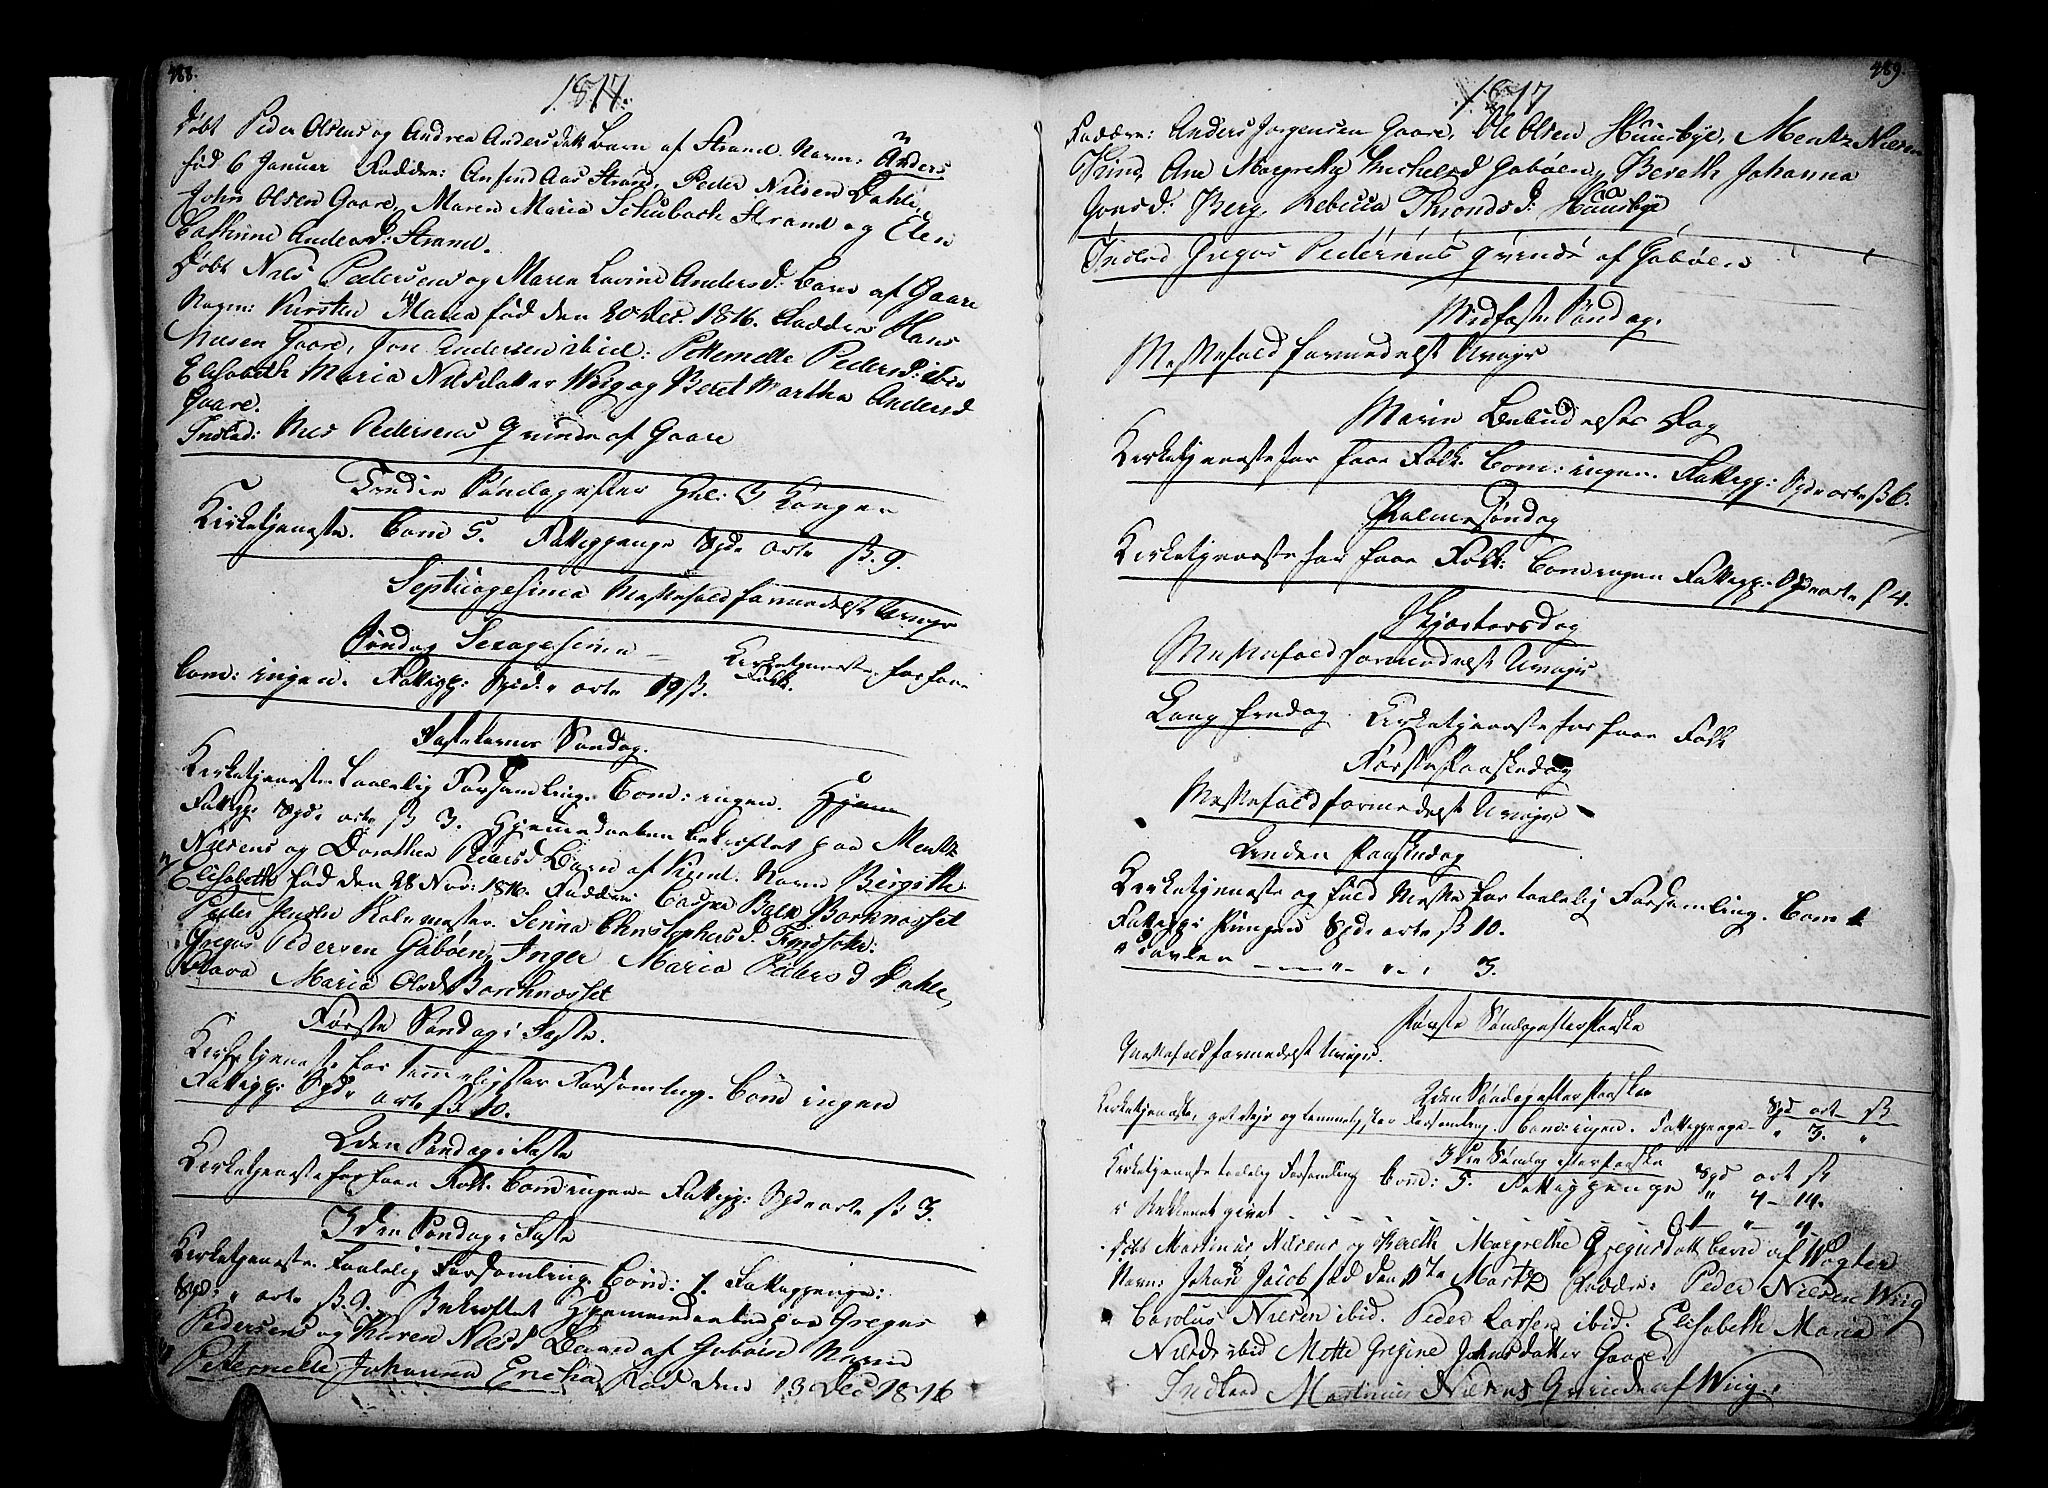 488.
1817.
Døbt Peder Olsens og Andrea Andersdatt Barn af Strand. Navn: Anders
fød 6 Januar Faddere: Anfind Aas Strand, Peder Nilsen Dahle,
John Olsen Gaare, Maren Maria Schübach Strand og Elen
Cathrine Andersd: Strand.
Døbt Niels Pedersens og Maren Lovise Andersd: Barn af Gaare
Navn: Kirsten Maria fød den 20 Dec. 1816. Faddere Hans
Nilsen Gaare, Jon Andersen ibid: Petternelle Pedersd: ibid
Elisabeth Maria Nilsdatter Wiig og Beret Martha Andersd
Gaare.
Indled: Niels Pedersens Qvinde af Gaare
Tredie Søndag efter Hel: 3 Konger
Kirketjeneste. Com 5. Fattigpenge Spd. orte ß. 9.
Septuagesima Messefald formedelst Uveyr
Søndag Sexagesima - Kirketjeneste for faae Folk.
Com: ingen. Fattigp: Spd. orte 19 ß.
Fastelavns Søndag.
Kirketjeneste taalelig Forsamling. Com: ingen.
Fattigp: Spd. orte ß 3. Hjemmedaaben bekræftet paa Mentz
Nilsens og Dorothea Pedersd Barn af Kind. Navn Birgitte
Elisabeth fød den 28 Nov: 1816. Faddere: Casper Balk Borknæsset
Peder Jensen Skolemester. Senina Christophersd.
Gregus Pedersen Gabøen, Inger Maria Pedersd Dahle,
Maria Olsd Borchnæsset
Første Søndag i Faste.
Kirketjeneste for temmelig stor Forsamling. Com ingen
Fattigp: Spd. orte ß 10.
2den Søndag i Faste
Kirketjeneste for faae Folk. Com ingen Fattigp: Spd orte ß 3.
3den Søndag i Faste
Kirketjeneste. Taalelig Forsamling. Com: 1. Fattigpenge:
Spd: " orte ß. 9. Bekræftet Hjemmedaaben paa Gregus
Pedersens og Karen Nilsd Barn af Gabøen Navn
Peternelle Johanna Ericha, Fød den 13 Dec 1816
489.
1817
Faddere: Anders Jørgensen Gaare, Ole Olsen Huusbye, Mentz Nilsen
Kind, Ane Margrethe Michelsd Gabøen, Bereth Johanna
Jonsd. Berg, Rebecca Throndsd: Huusbye
Indled Gregus Pedersens Qvinde af Gabøen
Midfaste Søndag.
Messefald formedelst Uveyr
Mariæ Bebudelses Dag
Kirketjeneste for faae Folk. Com: ingen. Fattigp: Spd orte ß 6.
Palme Søndag
Kirketjeneste for faae Folk: Com ingen Fattigp: Spd orte ß 4.
Skjærtorsdag
Messefald formedelst Uveyr
Lang fredag. Kirketjeneste for faae Folk
Første Paaskedag
Messefald formedelst Uveyr
Anden Paaskedag
Kirketjeneste og fuld Messe for taalelig Forsamling. Com 1
Fattigp: Pungen Spd. orte ß 10.
" Tavlen - - " - " - " 3.
Første Søndag efter Paaske
Messefald formedelst Uveyr.
2den Søndag efter Paaske
Kirketjeneste, got Veyr og temmelig stor Forsamling. Com: ingen. Fattigpenge - Spd " ort 3. ß "
3die Søndag efter Paaske
Kirketjeneste taalelig Forsamling Com: 5. Fattigpenge Spd " ort 4 - ß 14.
Døbt Martinus Nilsens og Bereth Margrethe Gregusdatt barn af Wogter
Navn: Johan Jacob fød den Martz Faddere: Peder Nilsen Wiig
Carolus Nilsen ibid. Peder Larsen ibid. Elisabeth Maria
Nilsd: ibid Mette Gregine Johnsdatter Gaare.
Indled Martinus Nilsens Qvinde af Wiig.